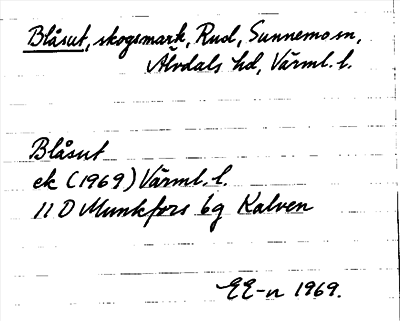 Blåsut, skogsmark, Rud, Sunnemo sn,
Älvdals hd, Värml. l.
Blåsut
ek (1969) Värml. l.
11 D Munkfors 6g Kalven
EE-n 1969.